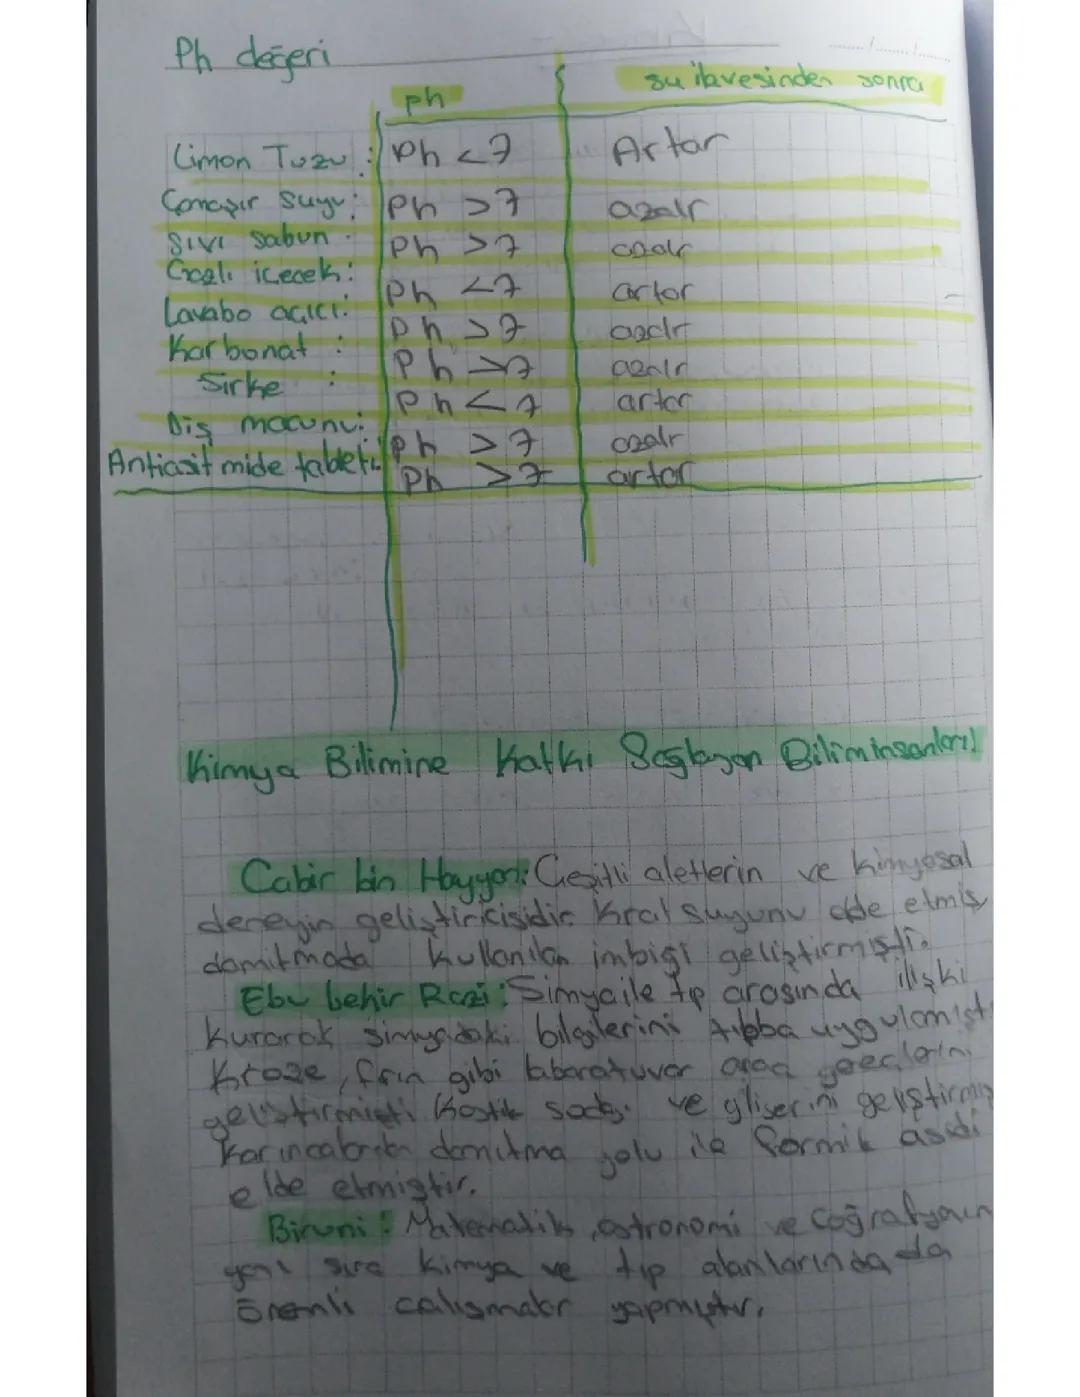 Ph değeri
ph su ilavesinden sonra
Limon Tuzu : Ph <7 Artar
Çamaşır suyu: Ph >7 azalr
Sıvı sabun : Ph >7 azalr
Gazlı icecek: Ph <7 artar
Lavabo acıcı: Ph >7 azalr
Karbonat : Ph >7 azalr
Sirke : Ph <7 artar
Diş macunu: Ph >7 azalr
Antiasit mide tableti: Ph >7 artar
Kimya Bilimine Katkı Sağlayan Bilim insanları!
Cabir bin Hayyan: Çeşitli aletlerin ve kimyasal
deneyin geliştiricisidir. Kral suyunu elde etmiş
damıtmada kullanılan imbiği geliştirmişti.
Ebu behir Razi: Simya ile tıp arasında ilişki
kurarak simyadaki bilgilerini tıbba uygulamıştı
Kroze, fırın gibi laboratuvar araç gereçlerini
geliştirmişti Kostik soda ve gliserini geliştirmiş
Karıncaların damıtma yolu ile formik asidi
elde etmiştir.
Biruni: Matematik, astronomi ve Coğrafyanın
yanı sıra kimya ve tıp alanlarında da
önemli calışmalar yapmıştır.